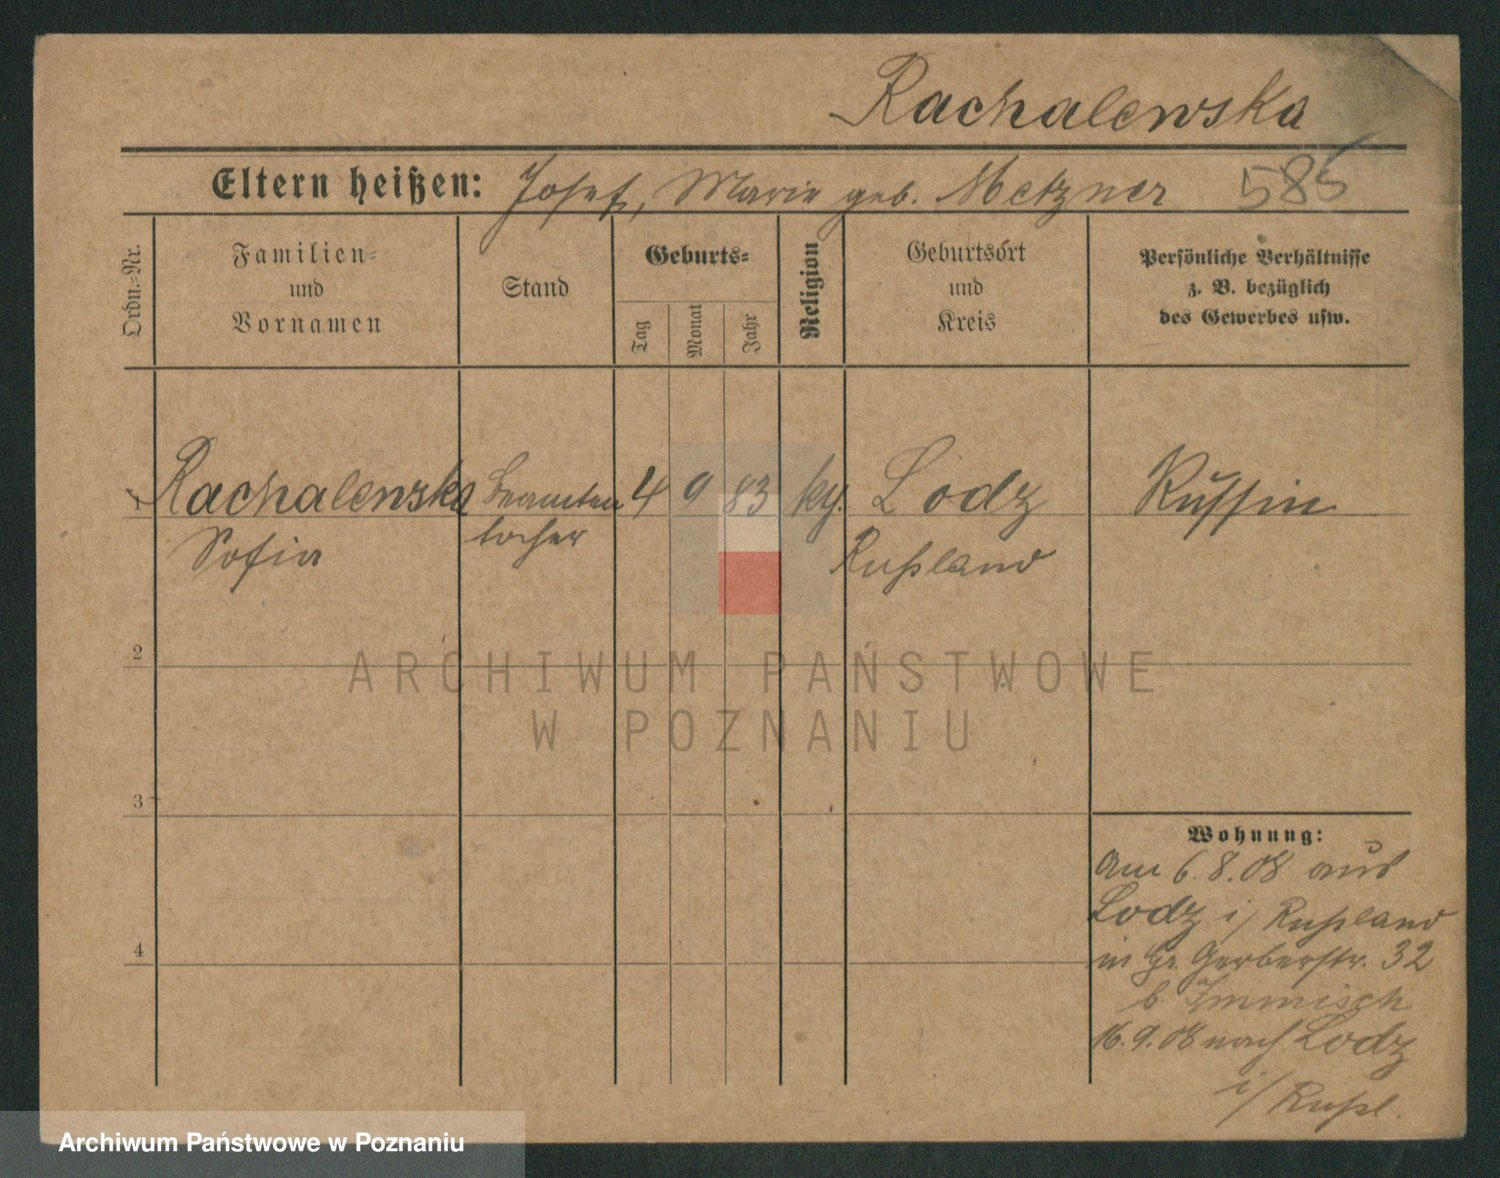 Rachalewska
Eltern heißen: Josef, Marie geb. Metzner 585
Ordn.-Nr.
Familien-
und
Vornamen
Stand
Geburts-
Tag
Monat
Jahr
Religion
Geburtsort
und
Kreis
Persönliche Verhältnisse
z. B. bezüglich
des Gewerbes usw.
1 Rachalewska Beamten 4 9 83 Lodz Russin
Sofia tochter Rußland
2
ARCHIWUM PAŃSTWOWE
W POZNANIU
3
Wohnung:
am 6.8.08 aus
Lodz i/ Rußland
in Gr. Gerberstr. 32
4
b. Immisch
16.9.08 nach Lodz
i/ Rußl.
Archiwum Państwowe w Poznaniu